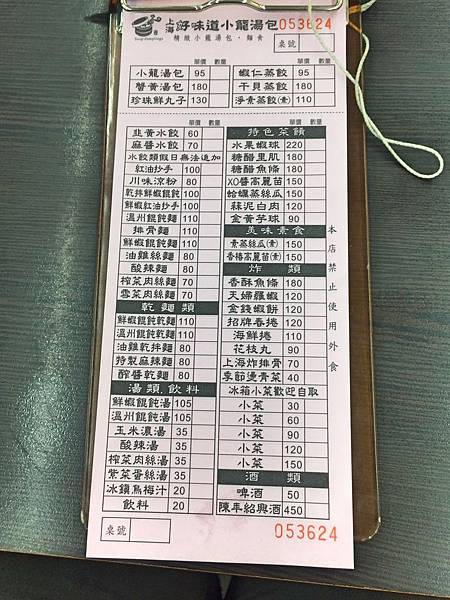 上海 好味道小龍湯包 053624
精緻小籠湯包・麵食
桌號
單價 數量 單價 數量
小龍湯包 95 蝦仁蒸餃 95
蟹黃湯包 180 干貝蒸餃 180
珍珠鮮丸子 130 淨素蒸餃(素) 110
單價 數量 單價 數量
韭黃水餃 60
麻醬水餃 70
水餃類假日無法追加
紅油抄手 100
川味涼粉 80
乾拌鮮蝦餛飩 100
鮮蝦紅油抄手 100
溫州餛飩麵 110
排骨麵 110
鮮蝦餛飩麵 110
油雞絲麵 80
酸辣麵 80
榨菜肉絲麵 70
雪菜肉絲麵 70
乾麵類
鮮蝦餛飩乾麵 110
溫州餛飩乾麵 110
油雞乾拌麵 80
特製麻辣麵 80
醡醬乾麵 80
湯類.飲料
鮮蝦餛飩湯 105
溫州餛飩湯 105
玉米濃湯 35
酸辣湯 35
榨菜肉絲湯 35
紫菜蛋絲湯 35
冰鎮烏梅汁 20
飲料 20
特色菜餚
水果蝦球 220
糖醋里肌 180
糖醋魚條 180
XO醬高麗苗 150
蛤蠣蒸絲瓜 150
蒜泥白肉 120
金黃芋球 90
美味素食
素蒸絲瓜(素) 150
香椿高麗苗(素) 150
炸類
香酥魚條 180
天婦羅蝦 120
金錢蝦餅 120
招牌春捲 120
海鮮捲 110
花枝丸 90
上海炸排骨 70
季節燙青菜 40
冰箱小菜歡迎自取
小菜 30
小菜 60
小菜 90
小菜 120
小菜 150
酒類
啤酒 50
陳年紹興酒 450
本店禁止使用外食
桌號 053624